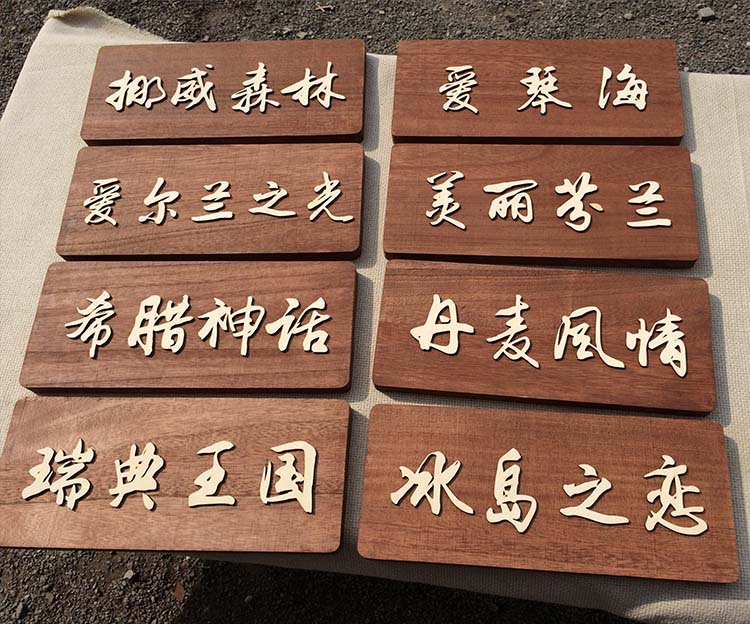 挪威森林
爱琴海
爱尔兰之光
美丽芬兰
希腊神话
丹麦风情
瑞典王国
冰岛之恋